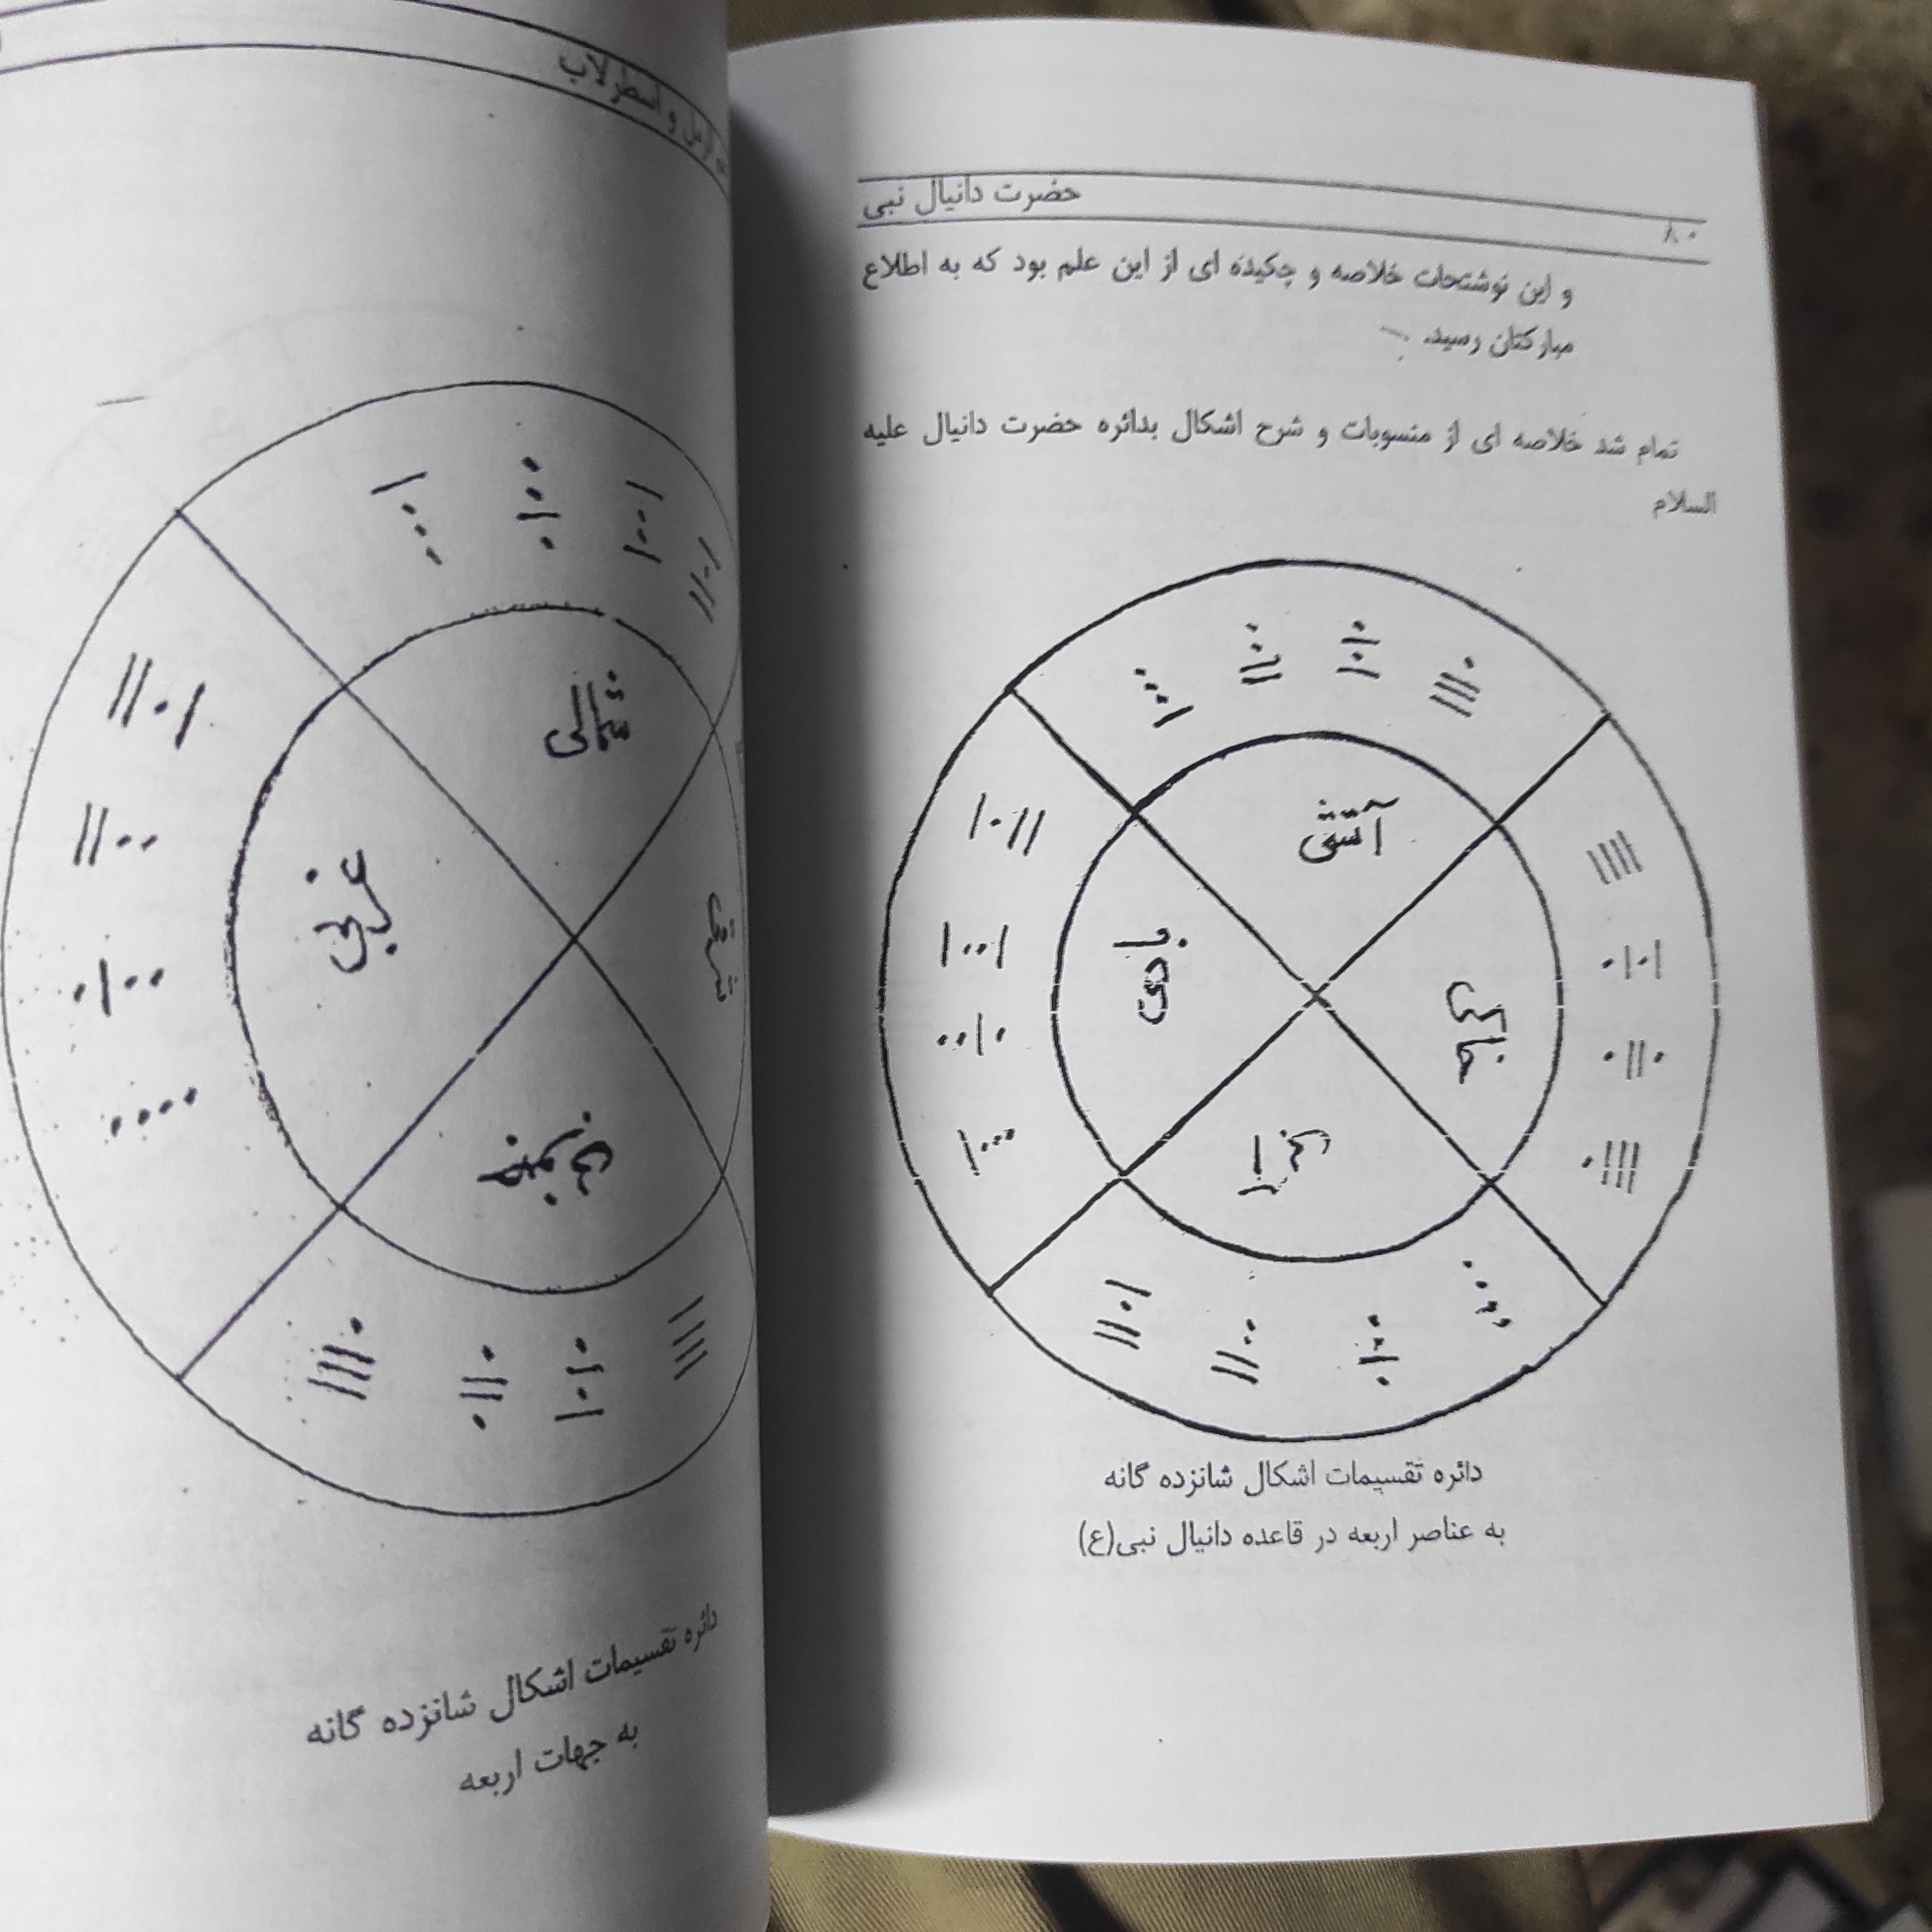 حضرت دانیال نبی
۸۰
و این نوشتحات خلاصه و چکیده ای از این علم بود که به اطلاع
مبارکتان رسید.
تمام شد خلاصه ای از منسوبات و شرح اشکال بدائره حضرت دانیال علیه
السلام
آتشی
بادی
خاکی
آبی
دائره تقسیمات اشکال شانزده گانه
به عناصر اربعه در قاعده دانیال نبی(ع)
رمل و اسطرلاب
شمالی
غربی
شرقی
جنوبی
دائره تقسیمات اشکال شانزده گانه
به جهات اربعه